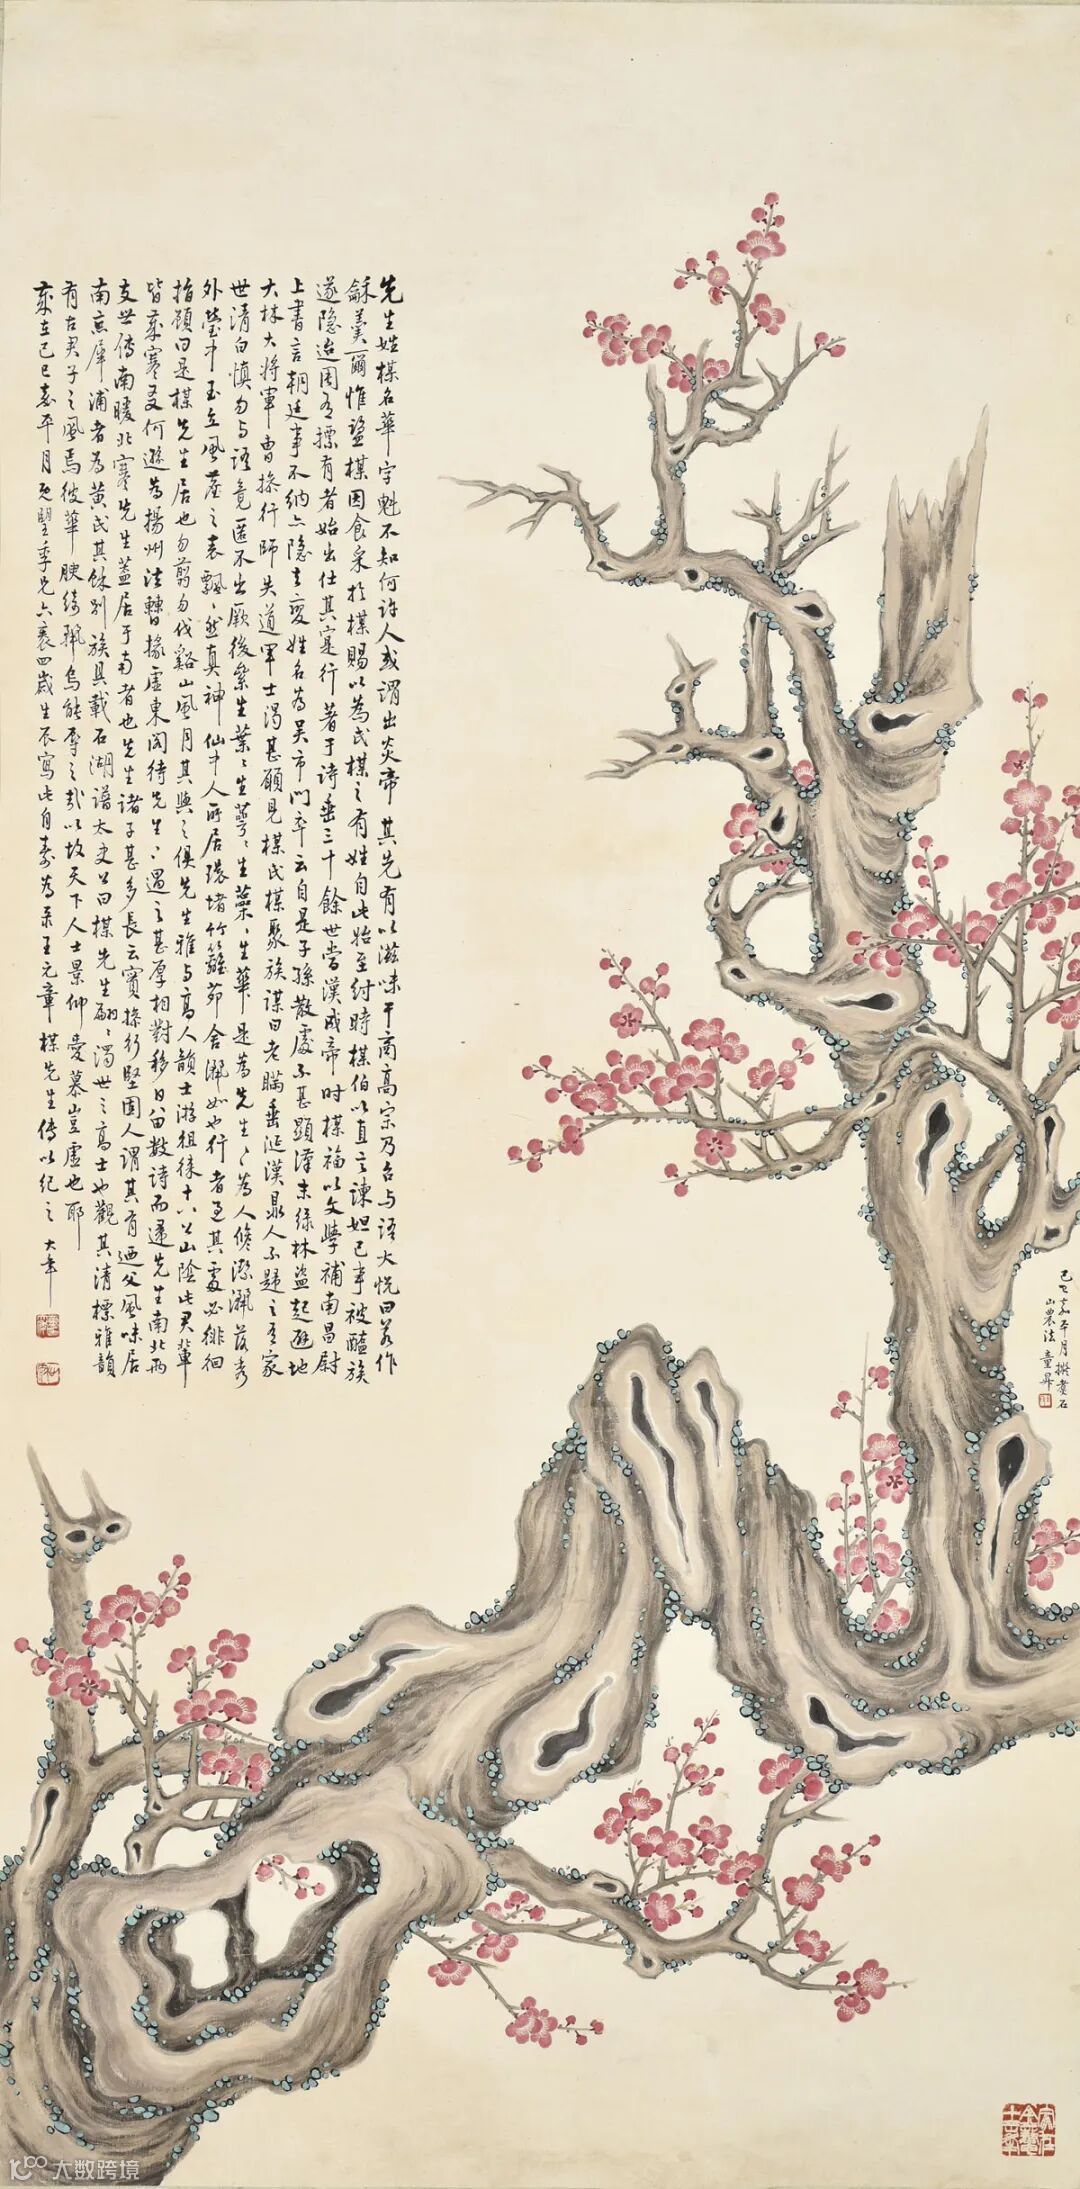 先生姓楳名華字魁不知何許人或謂出炎帝其先有以滋味干商高宗乃召与语大悦曰若作
龢羹爾惟盐楳因食采於楳賜以為氏楳之有姓自此始至纣時楳伯以直言諫妲己事被醢族
遂隐迨周有摽有者始出仕其寔行著于诗垂三十餘世當漢成帝时楳福以文學補南昌尉
上書言朝廷事不納亦隐去变姓名為吴市门卒云自是子孫散處不甚顯漢末绿林盗起避地
大林大将軍曹操行師失道軍士渴甚願見楳氏楳聚族谋曰老瞒垂涎漢鼎人不韙之吾家
世清白慎勿与语竟匿不出厥後絫生葉葉生萼萼生蘂蘂生華是為先生先生為人修潔灑落秀
外莹中玉立風塵之表飄飄然真神仙中人所居环堵竹籬茆舍灑如也行者過其處必徘徊
指顾曰是楳先生居也勿翦勿伐谿山風月其與之俱先生雅与高人韻士游徂徕十八公山陰此君輩
皆歲寒友何遜為揚州法曹掾虚東阁待先生先生遇之甚厚相對移日留数诗而還先生南北两
支世傳南暖北寒先生蓋居于南者也先生诸子甚多長云實操行堅固人谓其有迺父風味居
南京犀浦者為黄氏其餘别族具載石湖谱太史公曰楳先生翩翩濁世之高士也觀其清標雅韻
有古君子之風焉彼華腴绮珮烏能辱之哉以故天下人士景仰爱慕豈虚也耶
歲在己巳嘉平月既望季兄六袠四歲生辰寫此自壽為录王元章楳先生傳以纪之 大年
己巳嘉平月擬煮石
山農法童昇
大数跨境